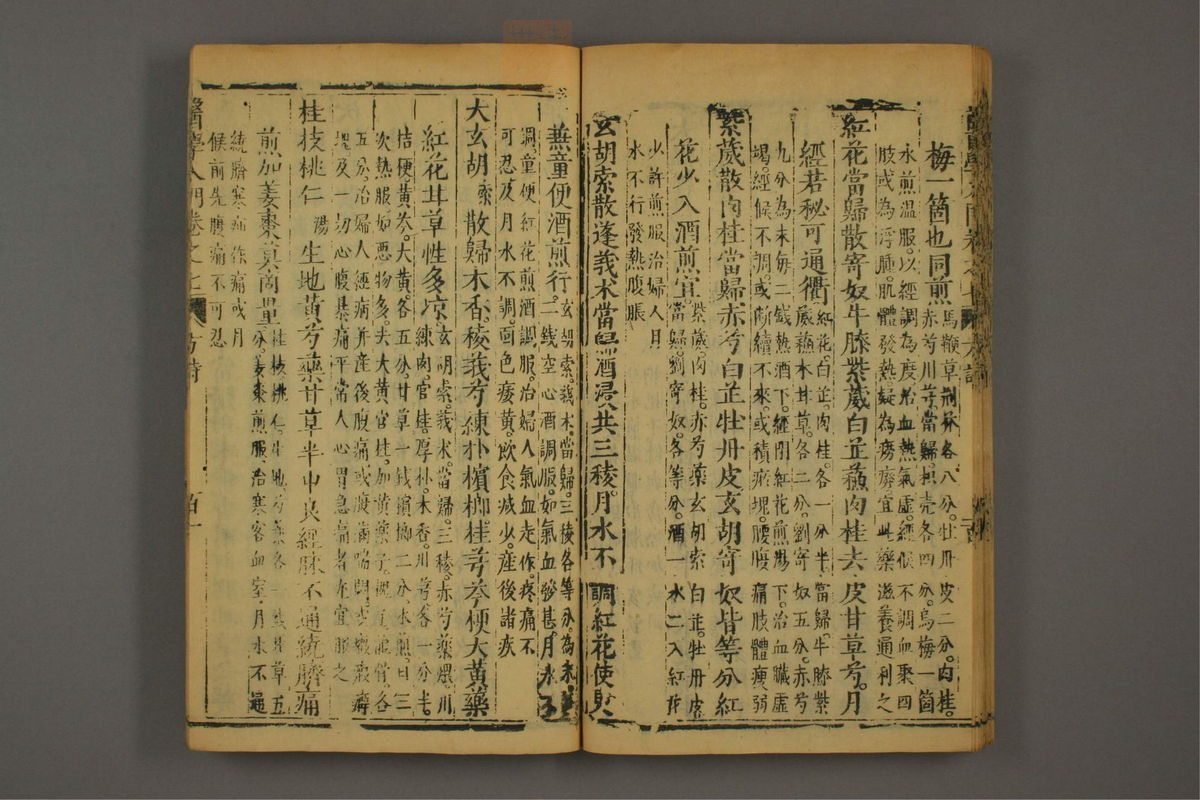 梅一箇也同煎
馬鞭草荆芥各八分牡丹皮二分肉桂
赤芍川芎當歸枳壳各四分烏梅一箇
水煎温服以經調為度治血熱氣虛經候不調血聚四
肢或為浮腫肌體發熱疑為癆瘵宜此藥滋養通利之
紅花當歸散寄奴牛膝紫葳白芷蘇肉桂去皮甘草芍月
經若秘可通衢
紅花白芷肉桂各一分半當歸牛膝紫
葳蘇木甘草各二分劉寄奴五分赤芍
九分為末每二錢熱酒下經閉紅花煎湯下治血臟虛
竭經候不調或斷續不來或積瘀塊腰腹痛肢體瘦弱
紫葳散肉桂當歸赤芍白芷牡丹皮玄胡寄奴皆等分紅
花少入酒煎宜
紫葳肉桂赤芍藥玄胡索白芷牡丹皮
當歸劉寄奴各等分酒一水二入紅花
少許煎服治婦人月
水不行發熱腹脹
玄胡索散蓬莪术當歸酒浸共三稜月水不調紅花使
童便酒煎行
玄胡索莪术當歸三稜各等分為末
二錢空心酒調服如氣血攻甚月水
調童便紅花煎酒調服治婦人氣血走作疼痛不
可忍及月水不調面色痿黄飲食減少産後諸疾
大玄胡索散歸木香稜莪芍練朴檳榔桂芎芩梗大黄藥
紅花甘草性多凉
玄胡索莪术當歸三稜赤芍藥煨川
練肉官桂厚朴木香川芎各一分半
桔梗黄芩大黄各五分甘草一錢檳榔二分水煎日三
次熱服如惡物多去大黄官桂加黄藥子槐子龍骨各
五分治婦人經病并産後腹痛或腹滿喘悶或癥瘕癖
塊及一切心腹暴痛平常人心胃急痛者亦宜服之
桂枝桃仁湯生地黄芍藥甘草半中良經脉不通繞臍痛
煎加姜棗莫商量
桂枝桃仁生地芍藥各一錢甘草五
分姜棗煎服治寒客血室月水不通
繞臍寒疝作痛或月
候前先腰痛不可忍
醫學入門卷之七
方詩